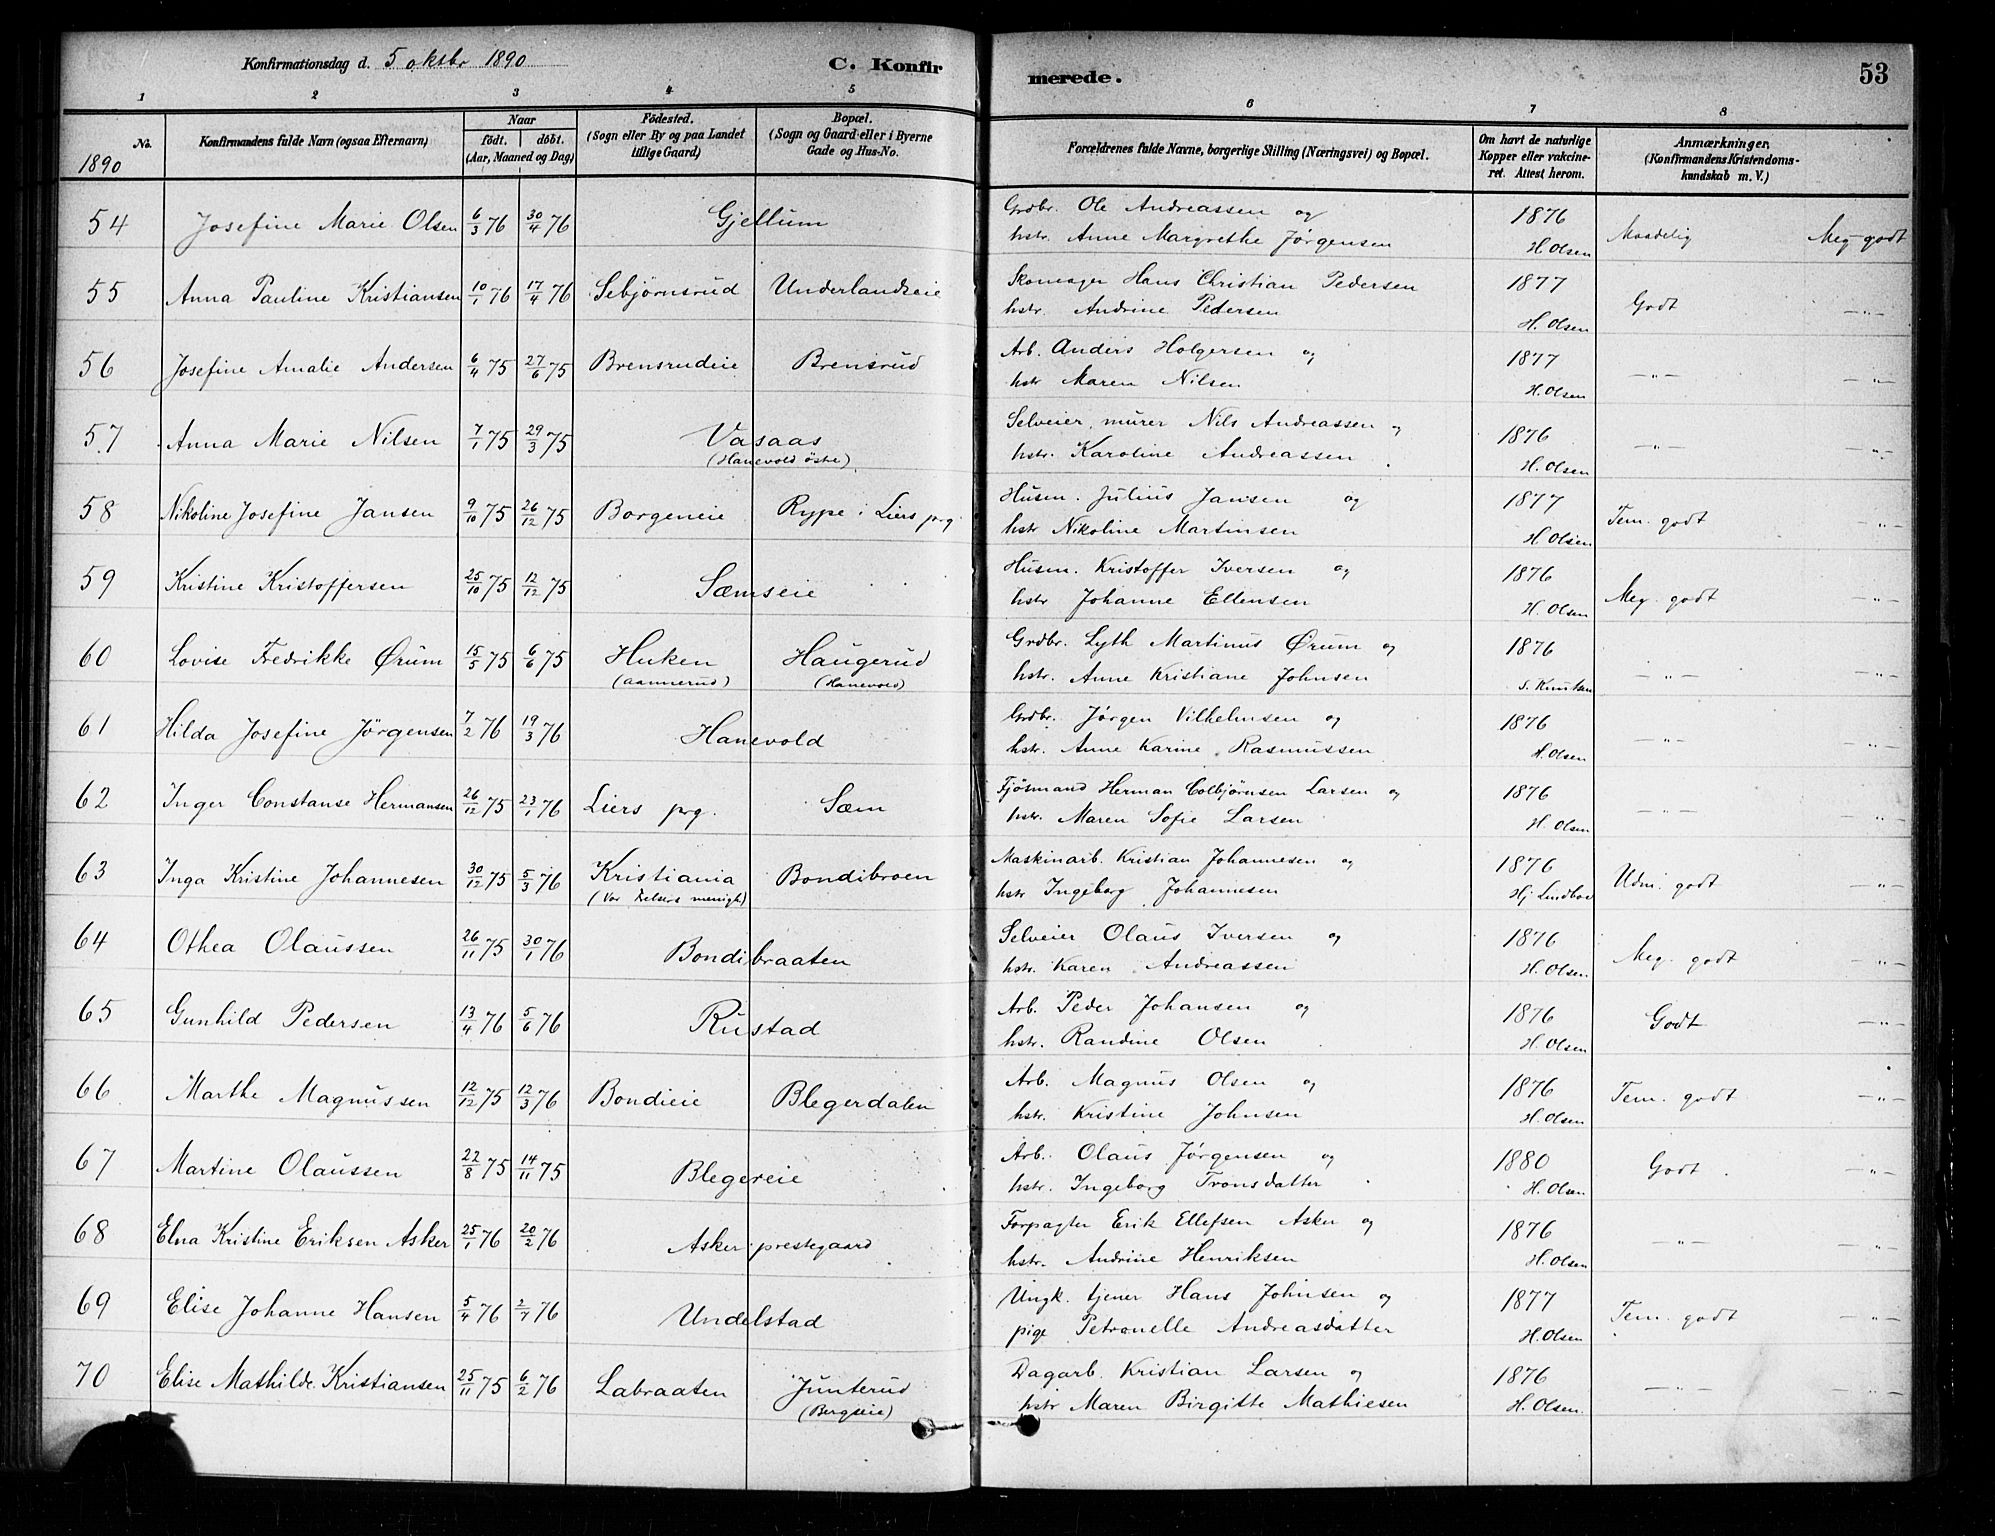 Konfirmationsdag d. 5 oktbr 1890
C. Konfirmerede.
53
1 2 3 4 5 6 7 8
No. 1890
Konfirmandens fulde Navn (ogsaa Efternavn)
Naar født. døbt. (Aar, Maaned og Dag)
Fødested. (Sogn eller By og paa Landet tillige Gaard)
Bopæl. (Sogn og Gaard eller i Byerne Gade og Hus-No.
Forældrenes fulde Navne, borgerlige Stilling (Næringsvei) og Bopæl.
Om havt de naturlige Kopper eller vakcineret. Attest herom.
Anmærkninger, (Konfirmandens Kristendomskundskab m. V.)
54 Josefine Marie Olsen 6/3 76 30/4 76 Gjellum Grdbr. Ole Andreassen og 1876 Maadelig Meg godt
hstr. Anne Margrethe Jørgensen H. Olsen
55 Anna Pauline Kristiansen 10/1 76 17/4 76 Sebjörnsrud Underlandseie Skomager Hans Christian Pedersen 1877 Godt —"—
hstr. Andrine Pedersen H. Olsen
56 Josefine Amalie Andersen 6/4 75 27/6 75 Brensrudeie Brensrud Arb. Anders Holgersen og 1877 —"— —"—
hstr Maren Nilsen H. Olsen
57 Anna Marie Nilsen 7/1 75 29/3 75 Vasaas Selveier, murer Nils Andreassen og 1876 —"— —"—
(Hanevold östre) hstr. Karoline Andreassen H. Olsen
58 Nikoline Josefine Jansen 9/10 75 26/12 75 Borgeneie Rype i Liers prg. Husm. Julius Jansen og 1877 Tem. godt —"—
hstr Nikoline Martinsen H. Olsen
59 Kristine Kristoffersen 25/10 75 12/12 75 Sæmseie Husm. Kristoffer Iversen og 1876 Meg. godt —"—
hstr Johanne Ellensen H. Olsen
60 Lovise Fredrikke Ørum 15/5 75 6/6 75 Huken Haugerud Grdbr. Lyth Martinus Ørum og 1876 —"— —"—
(Aannerud) (Hanevold) hstr. Anne Kristiane Johnsen S. Knutsen
61 Hilda Josefine Jörgensen 7/2 76 19/3 76 Hanevold Grdbr. Jørgen Vilhelmsen og 1876 —"— —"—
hstr. Anne Karine Rasmussen H. Olsen
62 Inger Constanse Hermansen 26/12 75 23/1 76 Liers prg. Sæm Fjösmand Herman Colbjørnsen Larsen og 1876 —"— —"—
hstr. Maren Sofie Larsen H. Olsen
63 Inga Kristine Johannesen 30/12 75 5/3 76 Kristiania Bondibroen Maskinarb. Kristian Johannesen og 1876 Udm. godt —"—
(Vor Frelsers menigh) hstr Ingeborg Johannesen Hj. Lindboe
64 Othea Olaussen 26/11 75 30/1 76 Bondibraaten Selveier Olaus Iversen og 1876 Meg. godt —"—
hstr. Karen Andreassen H. Olsen
65 Gunhild Pedersen 13/4 76 5/6 76 Rustad Arb. Peder Johansen og 1876 Godt —"—
hstr. Randine Olsen H. Olsen
66 Marthe Magnussen 12/12 75 12/3 76 Bondieie Blegerdalen Arb. Magnus Olsen og 1876 Tem. godt —"—
hstr. Kristine Johnsen H. Olsen
67 Martine Olaussen 22/8 75 14/11 75 Blegereie Arb. Olaus Jørgensen og 1880 Godt —"—
hstr. Ingeborg Tronsdatter H. Olsen
68 Elna Kristine Eriksen Asker 25/1 76 20/2 76 Asker prestegaard Forpagter Erik Ellefsen Asker og 1876 —"— —"—
hstr. Andrine Henriksen H. Olsen
69 Elise Johanne Hansen 5/4 76 2/7 76 Undelstad Ungk. tjener Hans Johnsen og 1877 Tem. godt —"—
pige Petronelle Andreasdatter H. Olsen
70 Elise Mathilde Kristiansen 25/11 75 6/2 76 Labraaten Junterud Dagarb. Kristian Larsen og 1876 —"— —"—
(Bergseie) hstr Maren Birgitte Mathiesen H. Olsen.